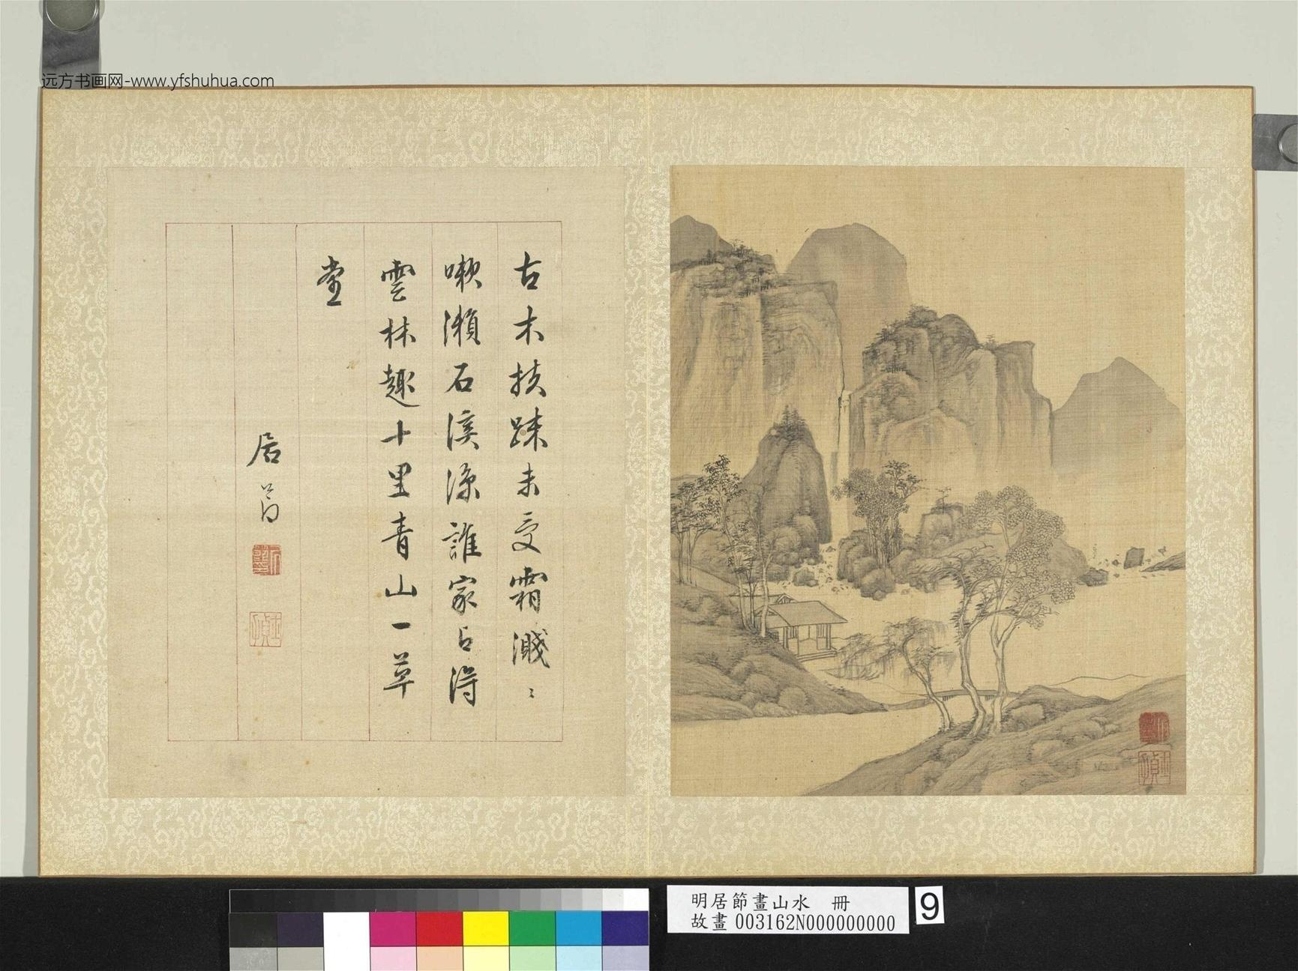 远方书画网-www.yfshuhua.com
古木扶疎未受霜濺〻
嗽瀨石溪涼誰家占得
雲林趣十里青山一草
堂
居節
明居節畫山水　冊
故畫003162N000000000
9